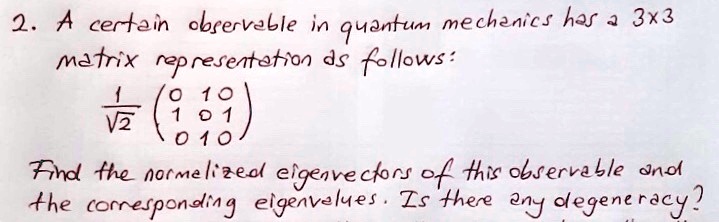 2. A certain observable in quantum mechanics has a 3x3
matrix representation as follows:
1/√2 (0 1 0
1 0 1
0 1 0)
Find the normalized eigenvectors of this observable and
the corresponding eigenvalues. Is there any degeneracy?